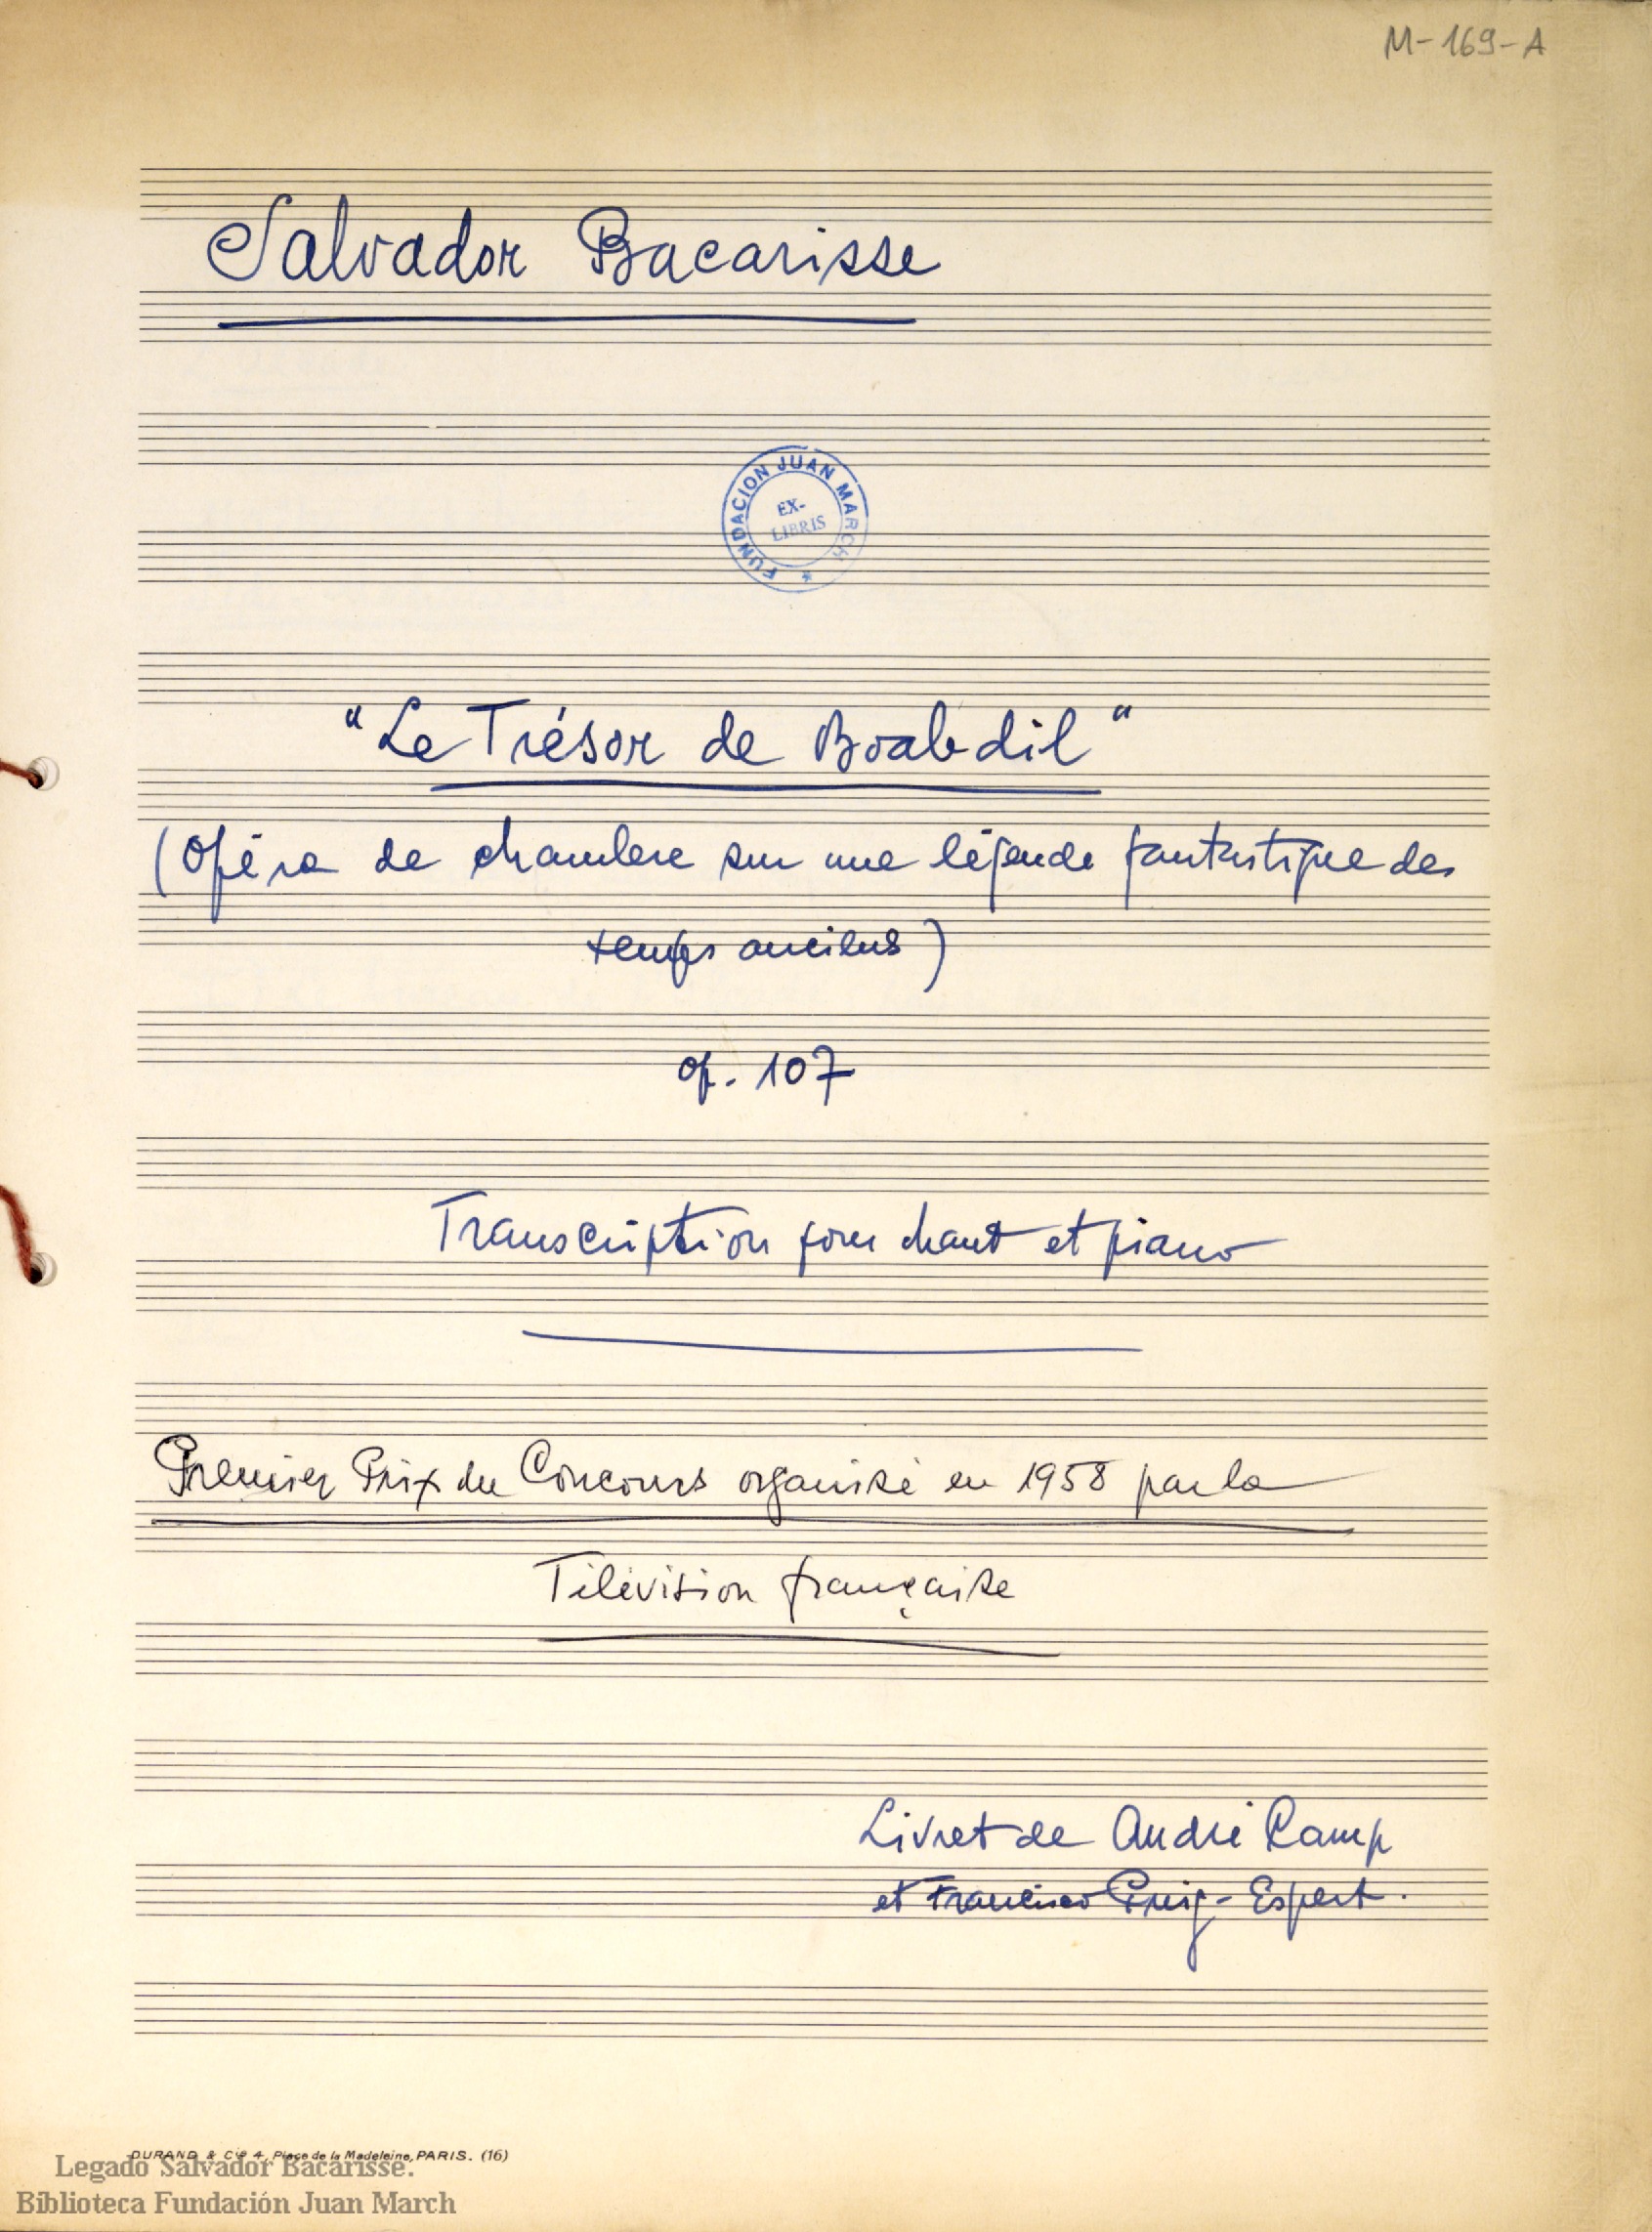 M-169-A
Salvador Bacarisse
FUNDACION JUAN MARCH *
EX-
LIBRIS
"Le Trésor de Boabdil"
(Opéra de chambre sur une légende fantastique des
temps anciens)
op. 107
Transcription pour chant et piano
Premier Prix du Concours organisé en 1958 par la
Télévision française
Livret de André Camp
et Francisco Puig-Espert.
DURAND & Cie 4, Place de la Madeleine, PARIS. (16)
Legado Salvador Bacarisse.
Biblioteca Fundación Juan March